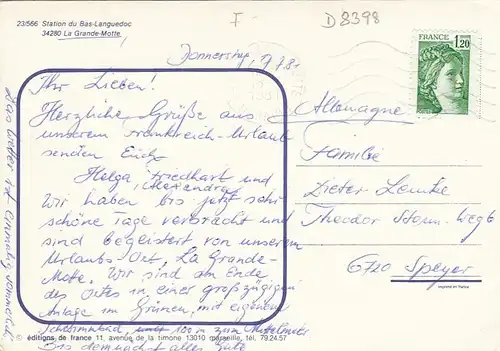 23/566 Station du Bas-Languedoc
34280 La Grande-Motte.
F
D 8398
Donnerstag,
FRANCE
1,20
Ihr Lieben!
Herzliche Grüße aus
unserem Frankreich-Urlaub
senden Euch
Helga Friedhart und
Alexandra
Wir haben bis jetzt sehr
schöne Tage verbracht und
sind begeistert von unserem
Urlaubs-Ort, La Grande-
Mote. Wir sind am Ende
des Ortes in einer großzügigen
Anlage im Grünen, mit eigenem
Schwimmbad 100 m zum Mittelmeer
Bis demnächst alles Gute
Das Wetter ist
Allemagne
Familie
Dieter Lemke
Theodor Storm-Weg 6
6720 Speyer
imprimé en France
© éditions de france 11, avenue de la timone 13010 marseille, tél. 79.24.57